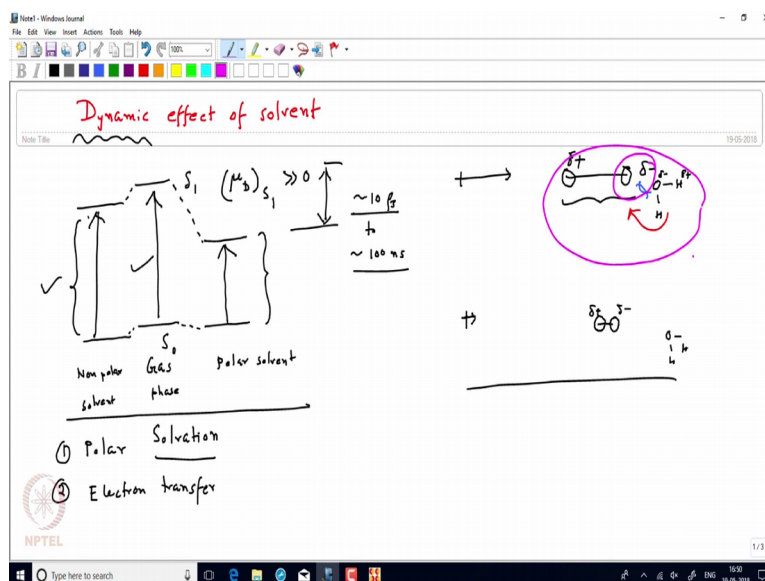 Note1 - Windows Journal
File Edit View Insert Actions Tools Help
100%
B I
Dynamic effect of solvent
Note Title
19-05-2018
S₁ (μ_D)_S₁ >> 0
~10 fs
to
~100 ns
δ+ δ-
δ- δ+
O-H
H
S₀
Non polar solvent
Gas phase
Polar solvent
δ+ δ-
O-
H H
① Polar Solvation
② Electron transfer
NPTEL
1/3
Type here to search
ENG
16:50
19-05-2018